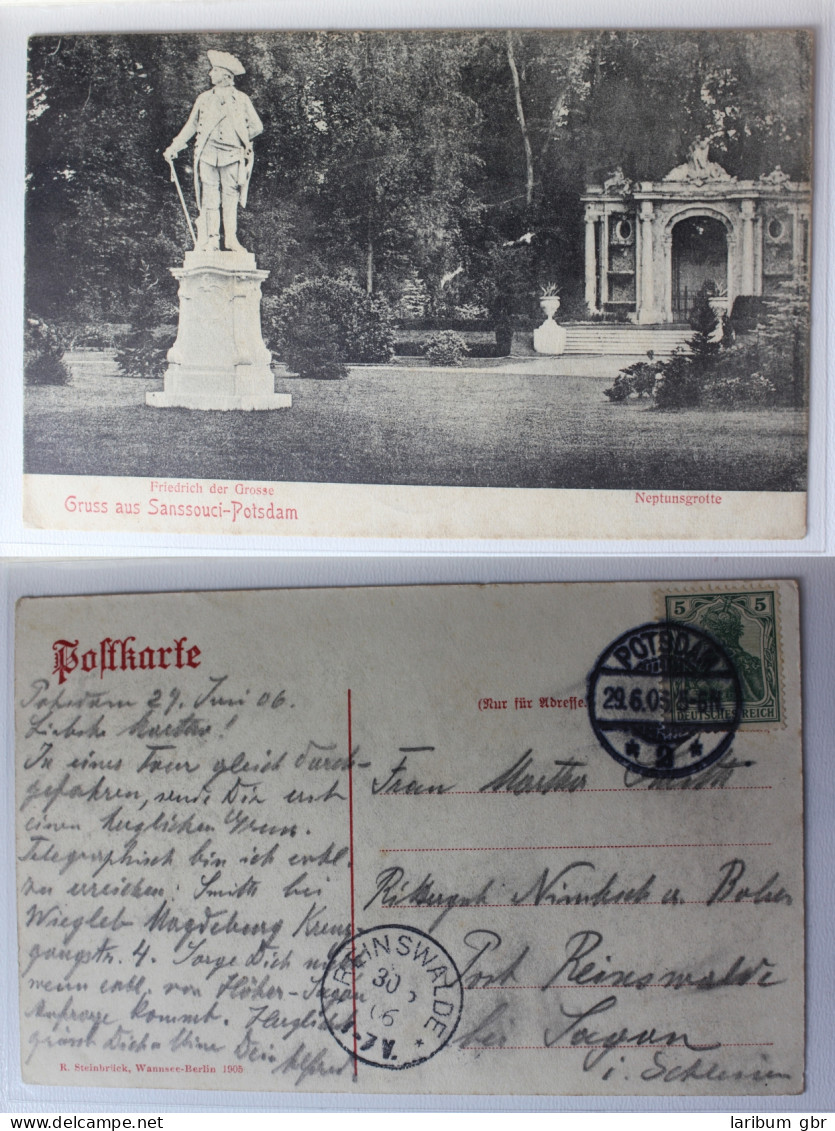 Friedrich der Grosse
Neptunsgrotte
Gruss aus Sanssouci-Potsdam
Postkarte
(Nur für Adresse.
5 5
DEUTSCHES REICH
POTSDAM
29.6.06 5-6N
* 2 *
Potsdam 29. Juni 06.
Liebste Martha!
In einer Tour gleich durch-
gefahren, sende Dir erst
einen herzlichen Gruss.
Telegraphisch bin ich evtl.
zu erreichen: Smith bei
Wiegleb Magdeburg Kreuz-
gangstr. 4. Sorge Dich nicht
wenn evtl. von Höher-Sagan
Anfrage kommt. Herzlichst
grüsst Dich u. Kleine Dein Alfred
Frau Martha Smith
Rittergut Nimbsch a. Bober
Post Reinswalde
bei Sagan
i. Schlesien
REINSWALDE
30
06
R. Steinbrück, Wannsee-Berlin 1905
laribum gbr